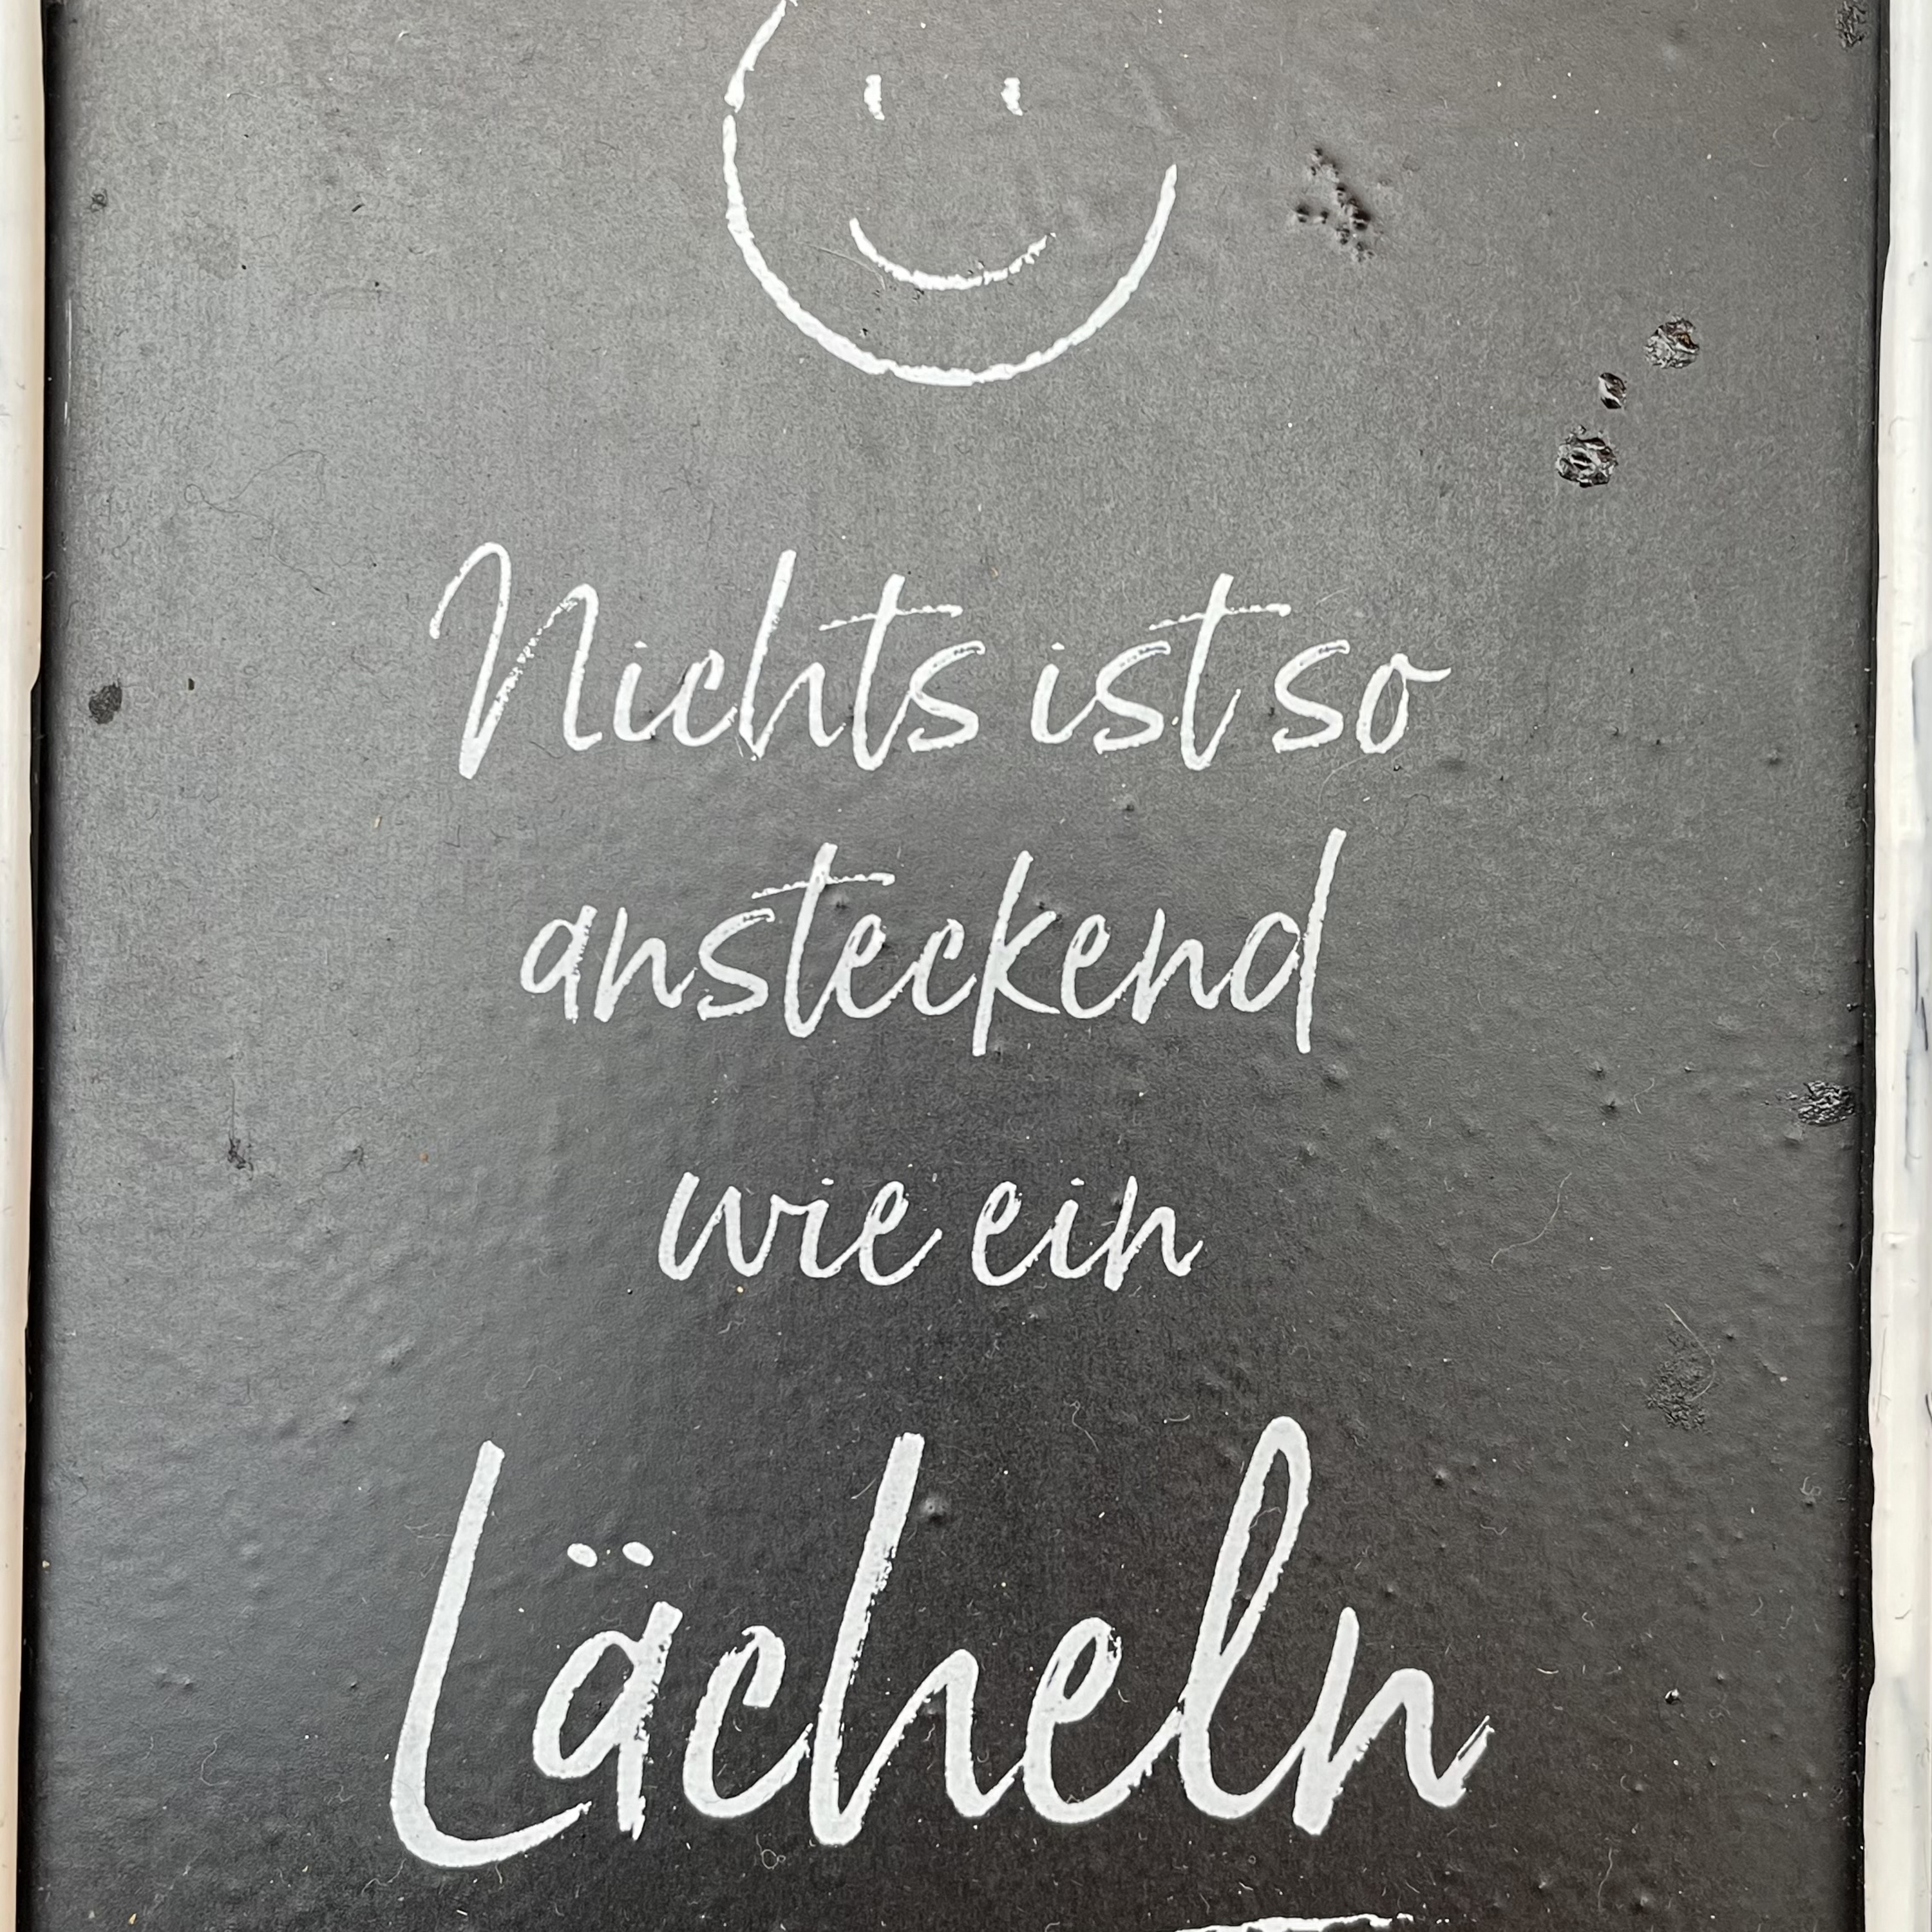 Nichts ist so
ansteckend
wie ein
Lächeln